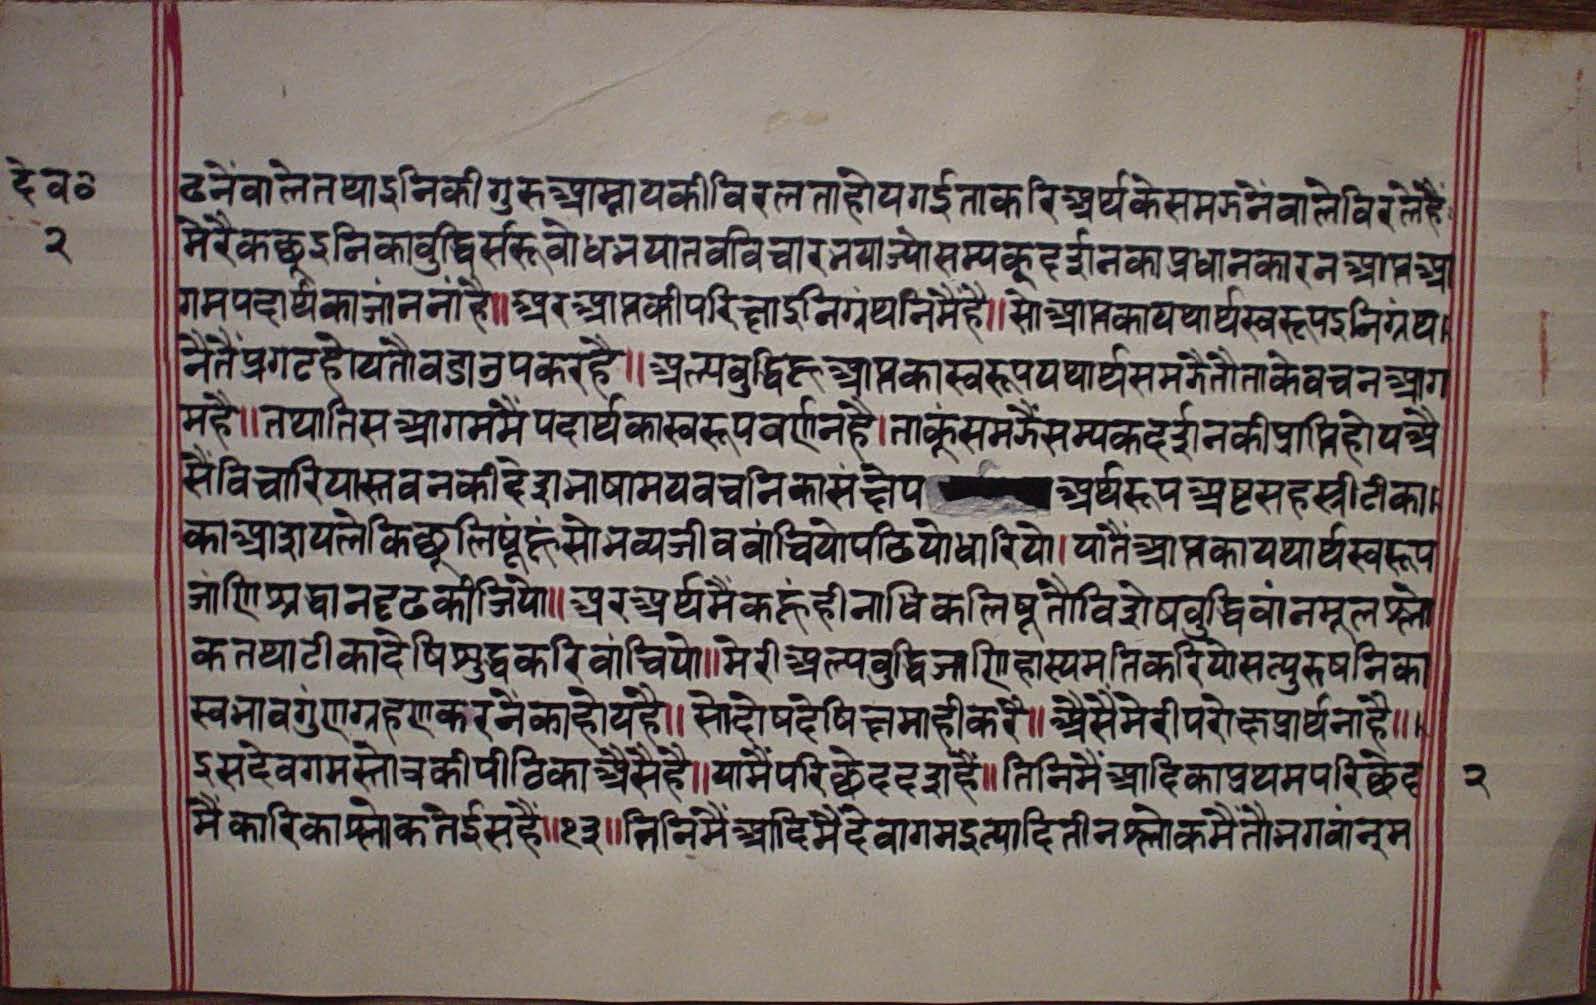 देव०
२
ढनेंवालेतथाइनिकीगुरुआम्नायकीविरलताहोयगईताकरिअर्थकेसमझनेंवालेविरलेहैं
मेरैकछूइनिकावुद्धिसारूवोधभयातवविचारभयाज्योसम्यक्दर्शनकाप्रधानकारनआप्तआ
गमपदार्थकाजांननांहै॥अरआप्तकीपरिक्षाइनिग्रंथनिमैंहै॥सोआप्तकायथार्थस्वरूपइनिग्रंथ।
नैतैंप्रगटहोयतौवडाउपकरहै॥अल्पवुद्धिहूआप्तकास्वरूपयथार्थसमझैतौताकेवचनआग
महै॥तथातिसआगममैंपदार्थकास्वरूपवर्णनहै।ताकूंसमझैंसम्यकदर्शनकीप्राप्तिहोयअै
सैंविचारियास्तवनकीदेशभाषामयवचनिकासंक्षेप अर्थरूपअष्टसहस्त्रीटीका।
काआशयलेकिछूलिषूंहूंसोभव्यजीववांचियोपठियोधारियो।यातैंआप्तकायथार्थस्वरूप
जांणिश्रद्वानदृढकीजियो॥अरअर्थमैंकहूंहीनाधिकलिषूतौविशेषवुद्धिवांनमूलश्लो
कतथाटीकादेषिशुद्धकरिवांचियो॥मेरीअल्पवुद्धिजांणिहास्यमतिकरियोसत्पुरुषनिका
स्वभावगुंणग्रहणकरनेंकाहोयहै॥सोदोषदेषिक्षमाहीकरै॥अैसैंमेरीपरोक्षप्रार्थनाहै॥।
इसदेवगमस्तोत्रकीपीठिकाअैसैहै॥यामैंपरिछेददशहैं॥तिनिमैंआदिकाप्रथमपरिछेद
२
मैंकारिकाश्लोकतेईसहैं॥२३॥तिनिमैंआदिमैंदेवागमइत्यादितीनश्लोकमैंतौभगवांन्म